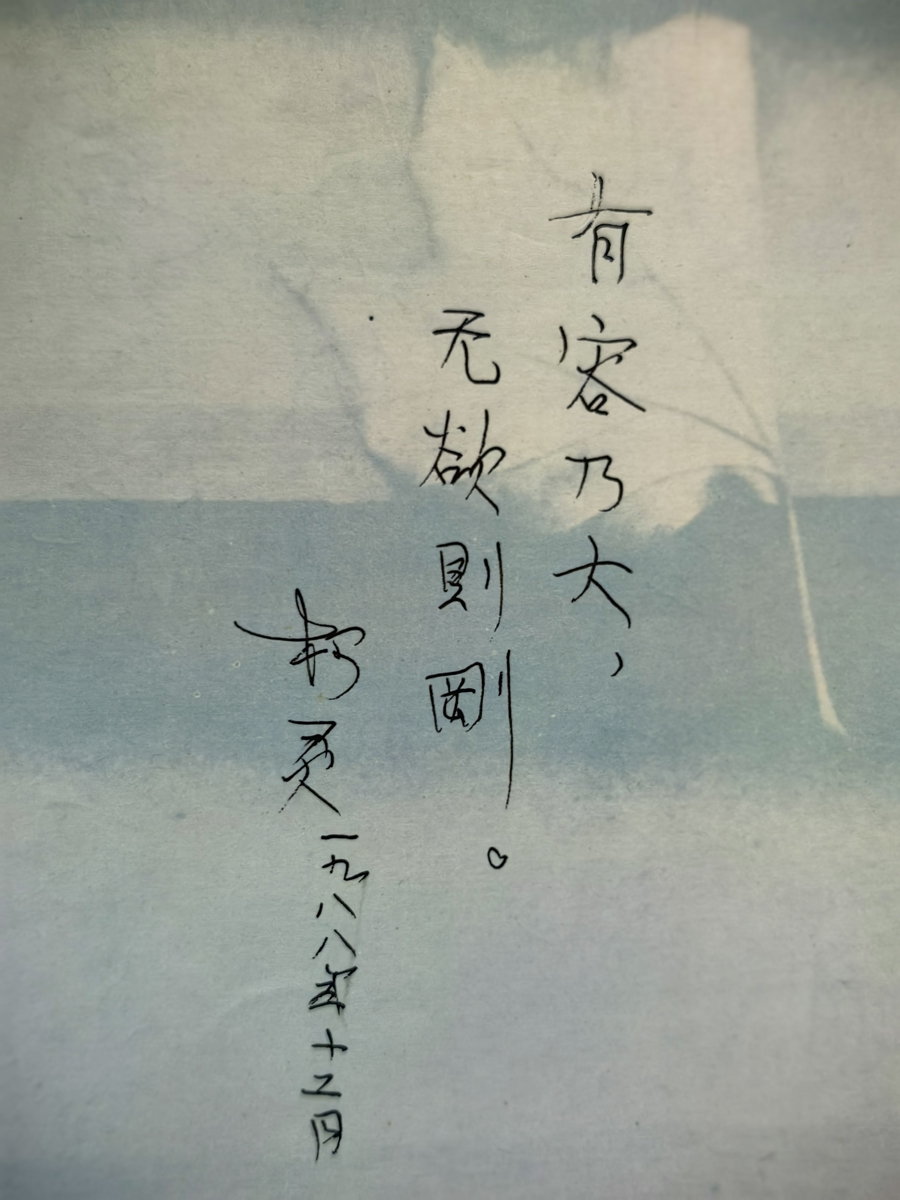 有容乃大，
无欲則剛。
柯灵
一九八八年十二月